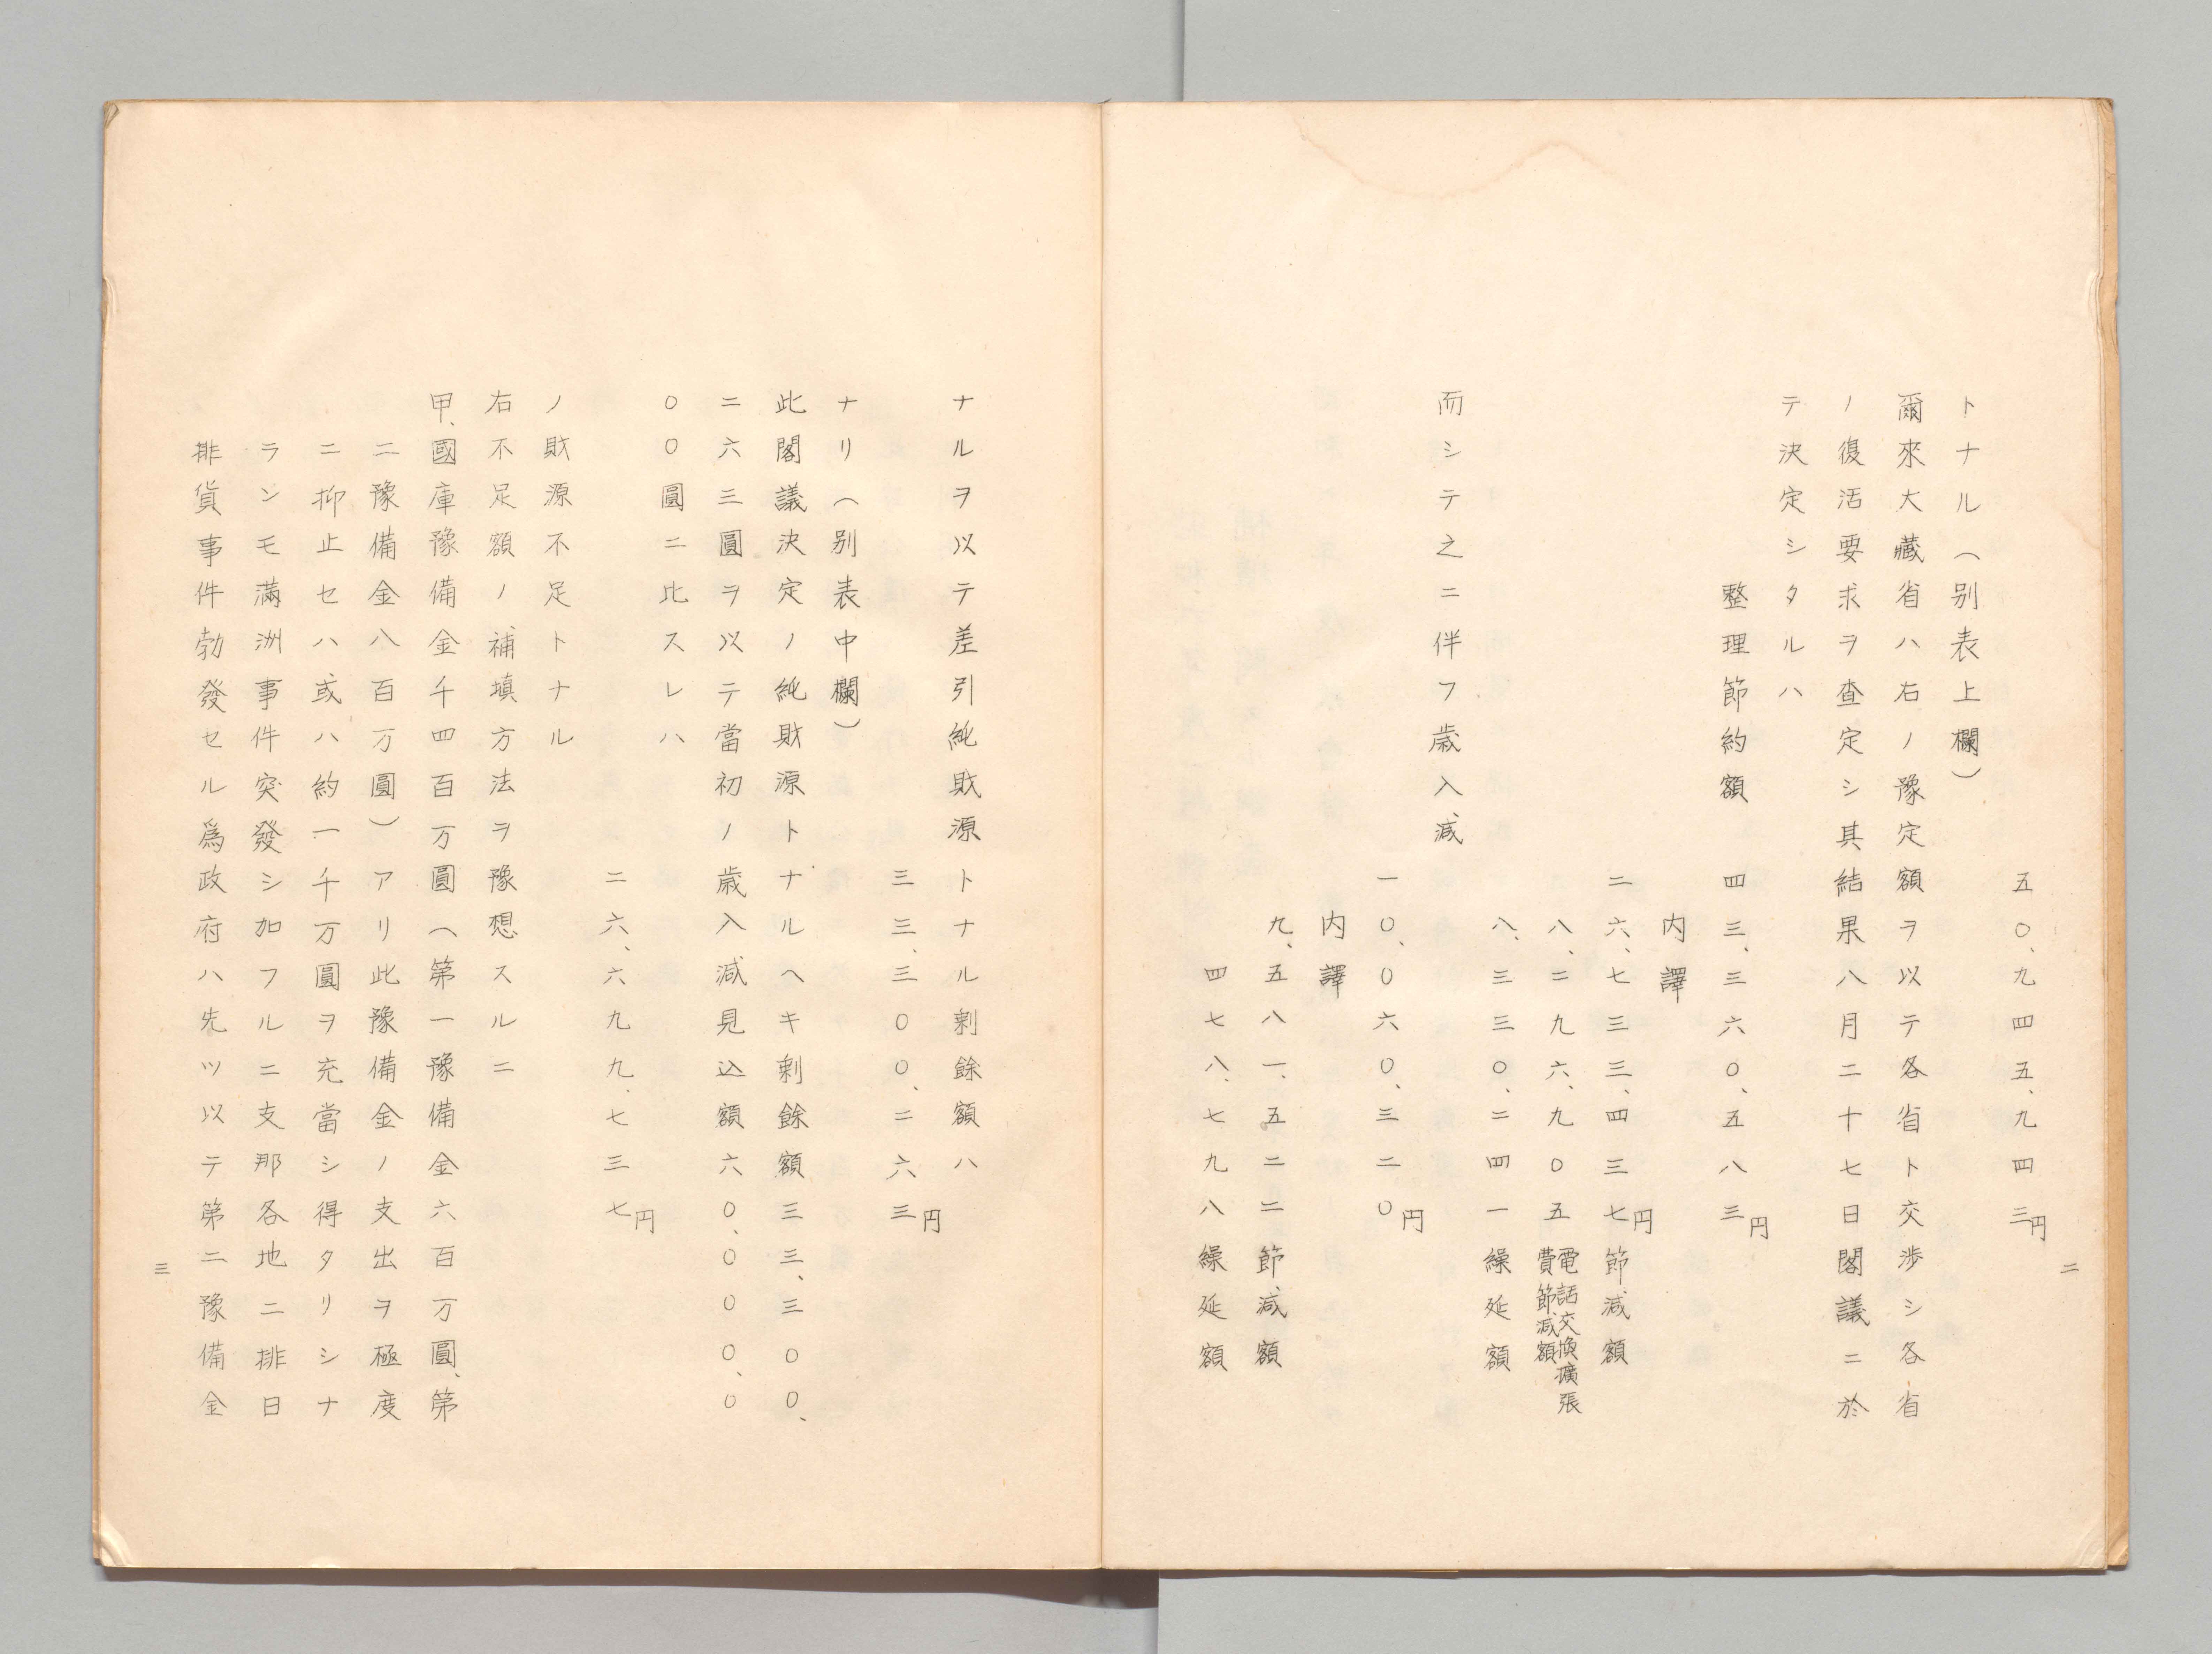 二
五〇、九四五、九四三円
トナル（別表上欄）
爾來大藏省ハ右ノ豫定額ヲ以テ各省ト交渉シ各省
ノ復活要求ヲ査定シ其結果八月二十七日閣議ニ於
テ決定シタルハ
整理節約額　四三、三六〇、五八三円
内譯
二六、七三三、四三七円節減額
八、二九六、九〇五電話交換擴張費節減額
八、三三〇、二四一繰延額
而シテ之ニ伴フ歳入減
一〇、〇六〇、三二〇円
内譯
九、五八一、五二二節減額
四七八、七九八繰延額
ナルヲ以テ差引純財源トナル剰餘額ハ
三三、三〇〇、二六三円
ナリ（別表中欄）
此閣議決定ノ純財源トナルヘキ剰餘額三三、三〇〇、
二六三圓ヲ以テ當初ノ歳入減見込額六〇、〇〇〇、〇
〇〇圓ニ比スレハ
二六、六九九、七三七円
ノ財源不足トナル
右不足額ノ補填方法ヲ豫想スルニ
甲、國庫豫備金千四百万圓（第一豫備金六百万圓、第
二豫備金八百万圓）アリ此豫備金ノ支出ヲ極度
ニ抑止セハ或ハ約一千万圓ヲ充當シ得タリシナ
ランモ滿洲事件突發シ加フルニ支那各地ニ排日
排貨事件勃發セル爲政府ハ先ツ以テ第二豫備金
三